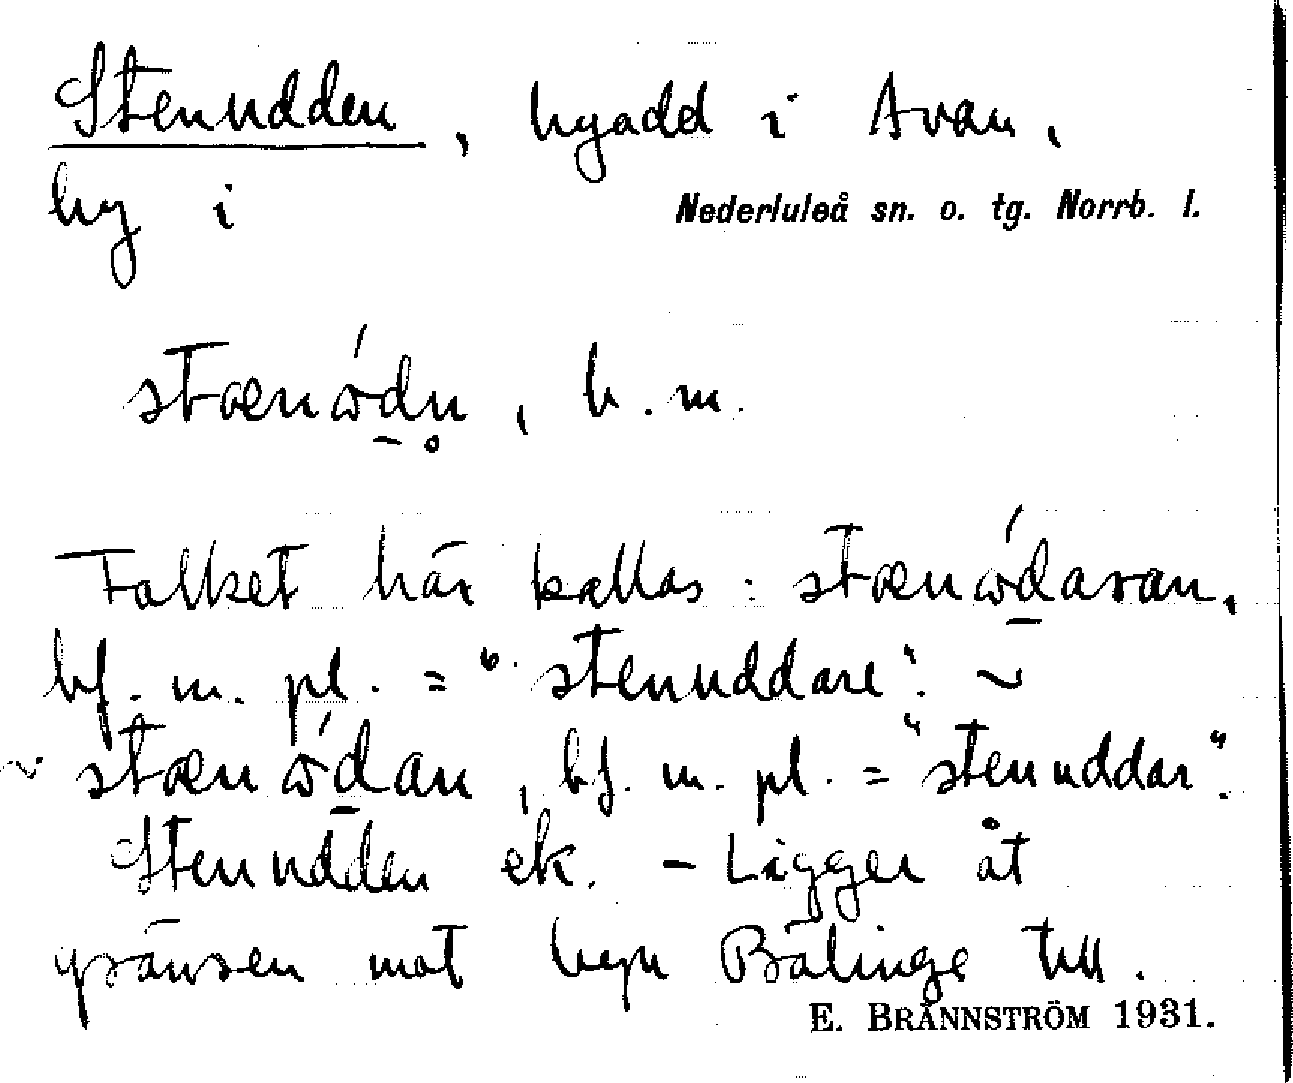 Stenudden, bydel i Avan,
by i Nederluleå sn. o. tg. Norrb. l.
stænώd̲n̥, b. m.
Folket här kallas: stænώd̲aran,
bf. m. pl. = "stenuddare". ~
~ stænώd̲an, bf. m. pl. = "stenuddar".
Stenudden ek. - Ligger åt
gränsen mot byn Bälinge till.
E. BRÄNNSTRÖM 1931.